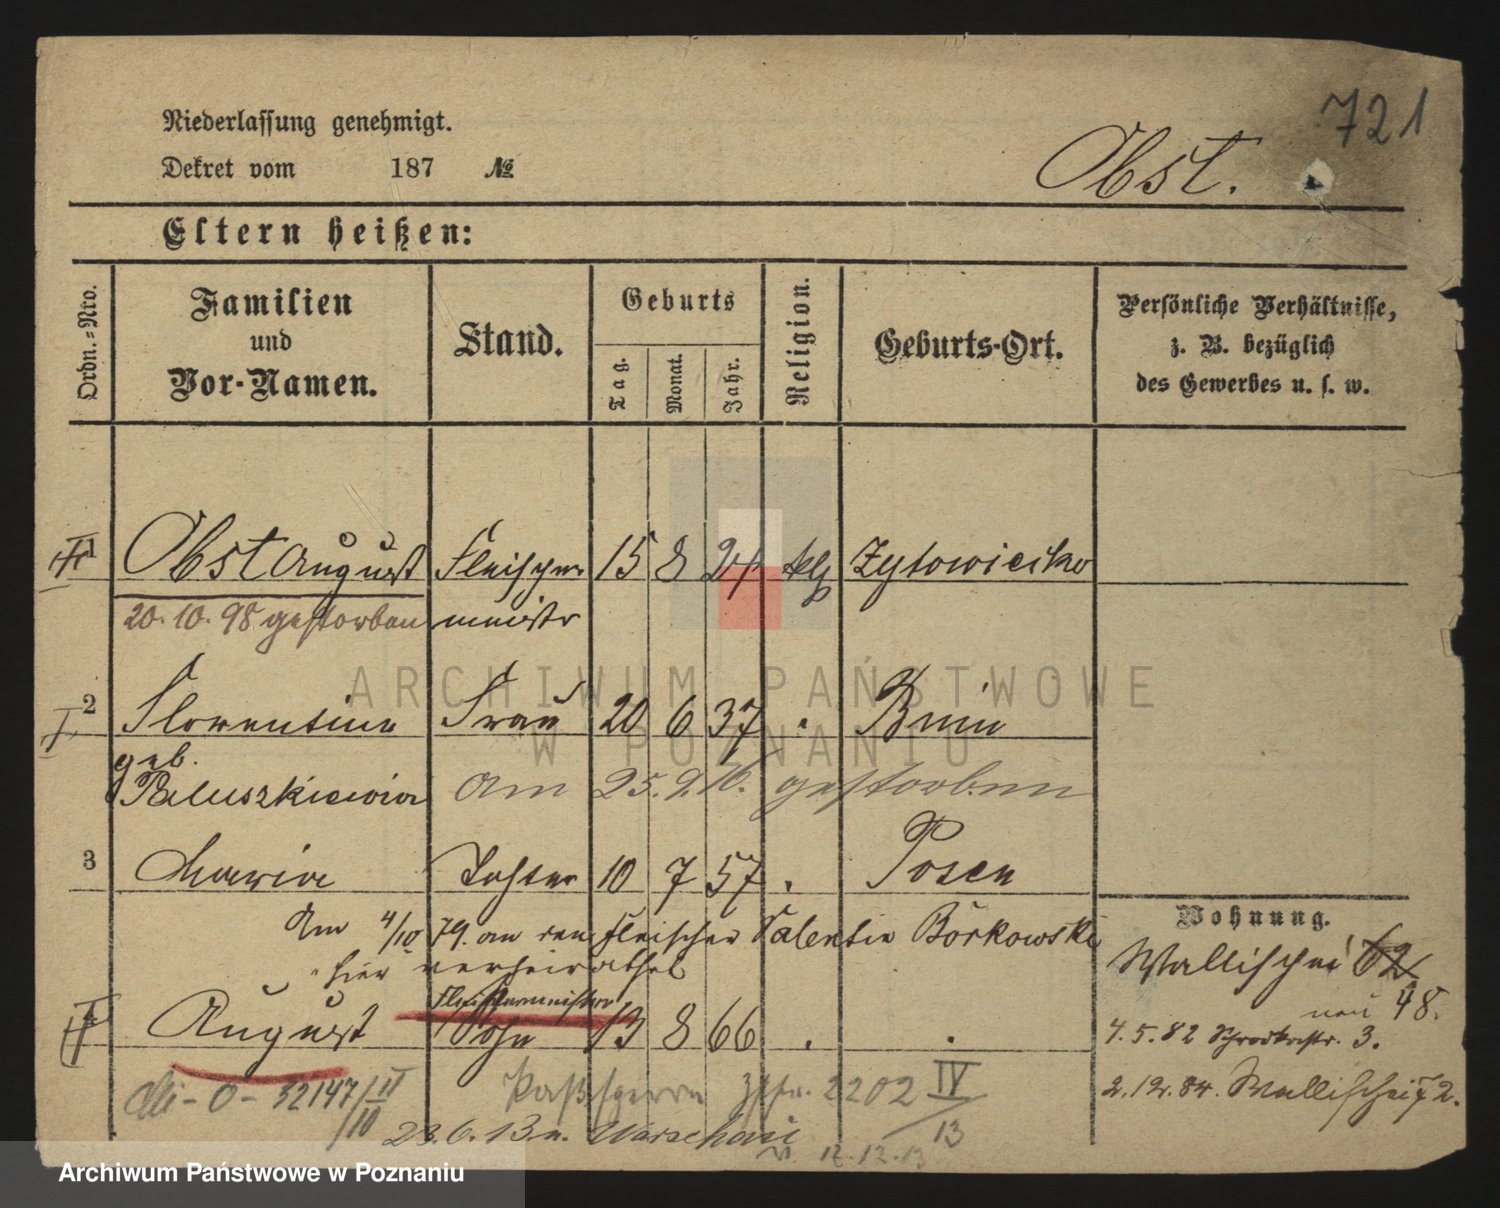 721
Niederlassung genehmigt.
Obst.
Dekret vom 187 №
Eltern heißen:
Ordn.-Nro.
Familien und Vor-Namen.
Stand.
Geburts
Tag.
Monat.
Jahr.
Religion.
Geburts-Ort.
Persönliche Verhältnisse,
z. B. bezüglich
des Gewerbes u. s. w.
1 Obst August Fleischer 15 8 24 klg Zytowiecko
20.10.98 gestorben meister
2 Florentine Frau 20 6 37 Bnin
geb.
Paluszkiewicz am 25.9.16. gestorben
3 Maria Tochter 10 7 57 Posen
Am 4/10 79. an den Fleischer Valentin Borkowski
hier verheirathet
Fleischermeister
August Sohn 13 8 66
Wohnung.
Wallischei 62
neu 48.
4.5.82 Schrodkastr. 3.
2.12.84. Wallischei 72.
32147/II/10 Paßsperre 2202 IV/13
23.6.13 n. Warschau
v. 12.12.13
ARCHIWUM PAŃSTWOWE
W POZNANIU
Archiwum Państwowe w Poznaniu